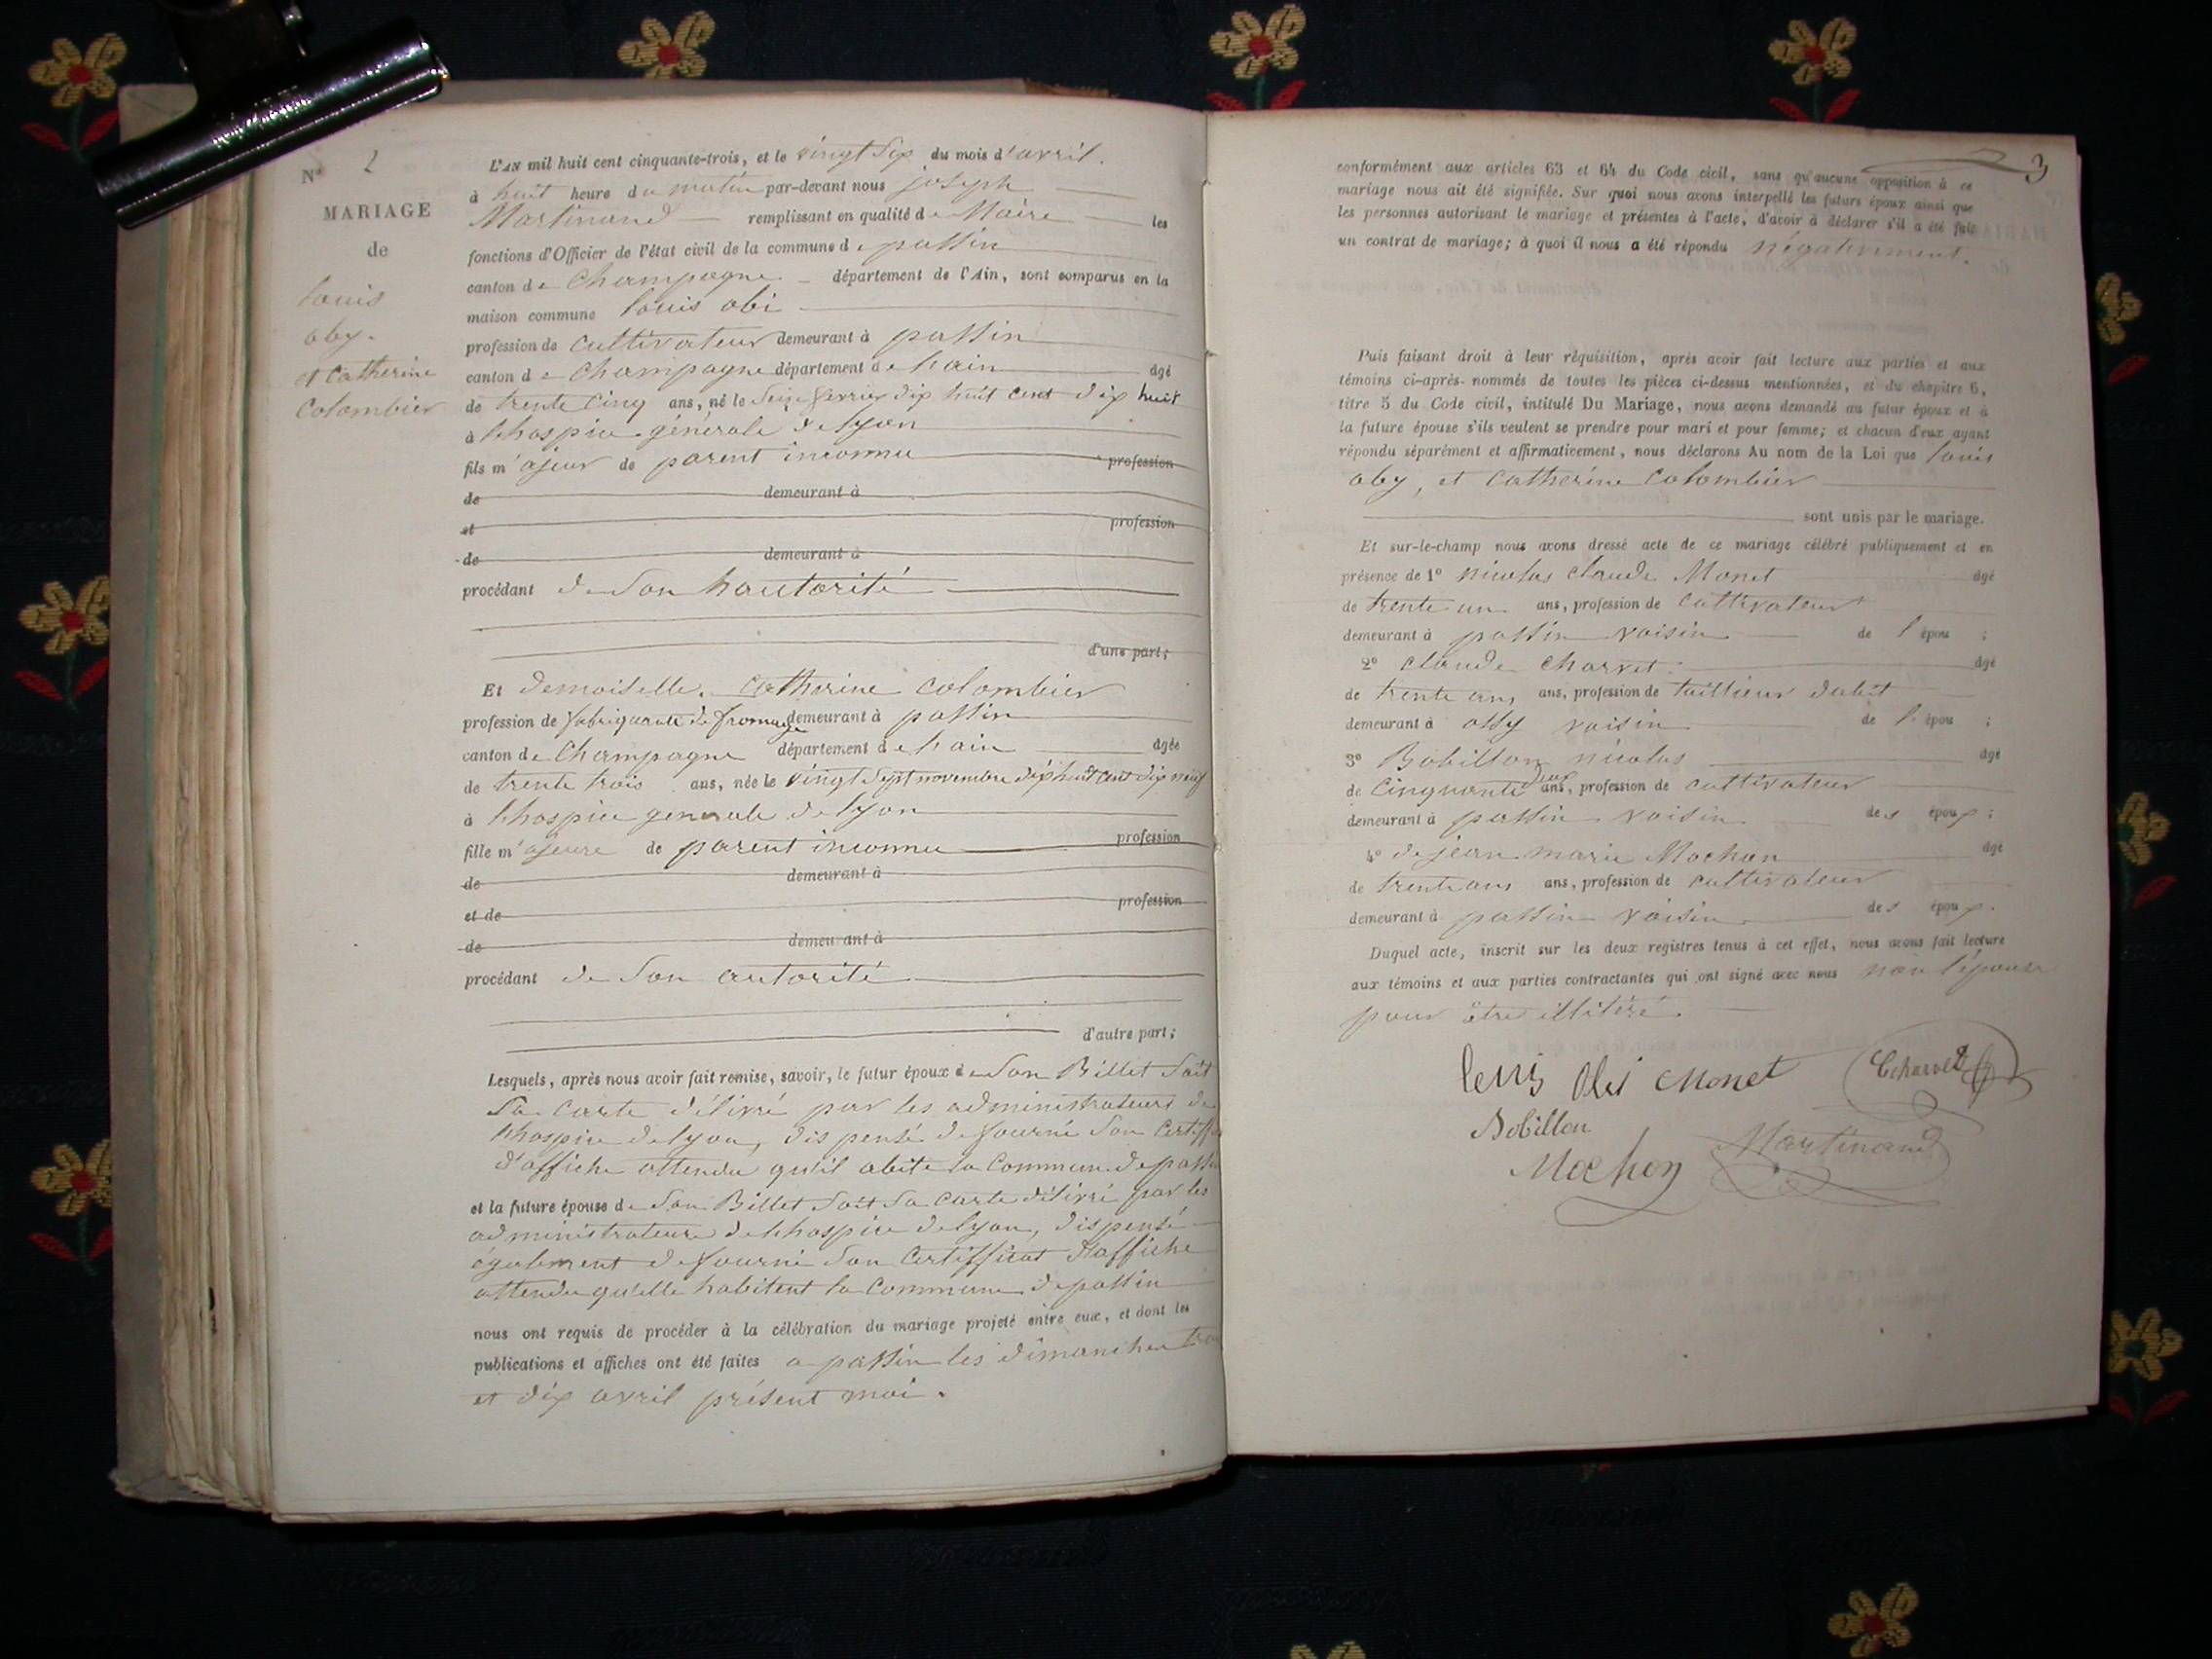 N° 2
MARIAGE
de
louis
oby.
et Catherine
Colombier
L'AN mil huit cent cinquante-trois, et le vingt Six du mois d'avril.
à huit heure du matin par-devant nous joseph
Martinand remplissant en qualité de Maire les
fonctions d'Officier de l'état civil de la commune de passin
canton de Champagne département de l'Ain, sont comparus en la
maison commune louis obi
profession de Cultivateur demeurant à passin
canton de Champagne département de hain âgé
de trente cinq ans, né le Seize fevrier dix huit cent dix huit
à lhospice générale de lyon
fils majeur de parent inconnu profession
de demeurant à
et profession
de demeurant à
procédant de Son hautorité
d'une part;
Et demoiselle. Catherine Colombier
profession de fabriquante de fromage demeurant à passin
canton de Champagne département de hain âgée
de trente trois ans, née le vingt Sept novembre dix huit cent dix neuf
à lhospice generale de lyon
fille majeure de parent inconnu profession
de demeurant à
et de profession
de demeurant à
procédant de Son autorité
d'autre part;
Lesquels, après nous avoir fait remise, savoir, le futur époux de Son Billet Soit
Sa Carte délivré par les administrateurs de
lhospice de lyon, dispensé de fourni Son Certiff
d'affiche attendu qu'il abite la Commune de passi
et la future épouse de Son Billet Soit Sa Carte délivré par les
administrateurs de lhospice de lyon, dispensé
également de fourni Son Certifficat d'affiche
attendu qu'elle habitent la Commune de passin
nous ont requis de procéder à la célébration du mariage projeté entre eux, et dont les
publications et affiches ont été faites a passin les dimanches
et dix avril présent moi.
3
conformément aux articles 63 et 64 du Code civil, sans qu'aucune opposition à ce
mariage nous ait été signifiée. Sur quoi nous avons interpellé les futurs époux ainsi que
les personnes autorisant le mariage et présentes à l'acte, d'avoir à déclarer s'il a été fait
un contrat de mariage; à quoi il nous a été répondu négativement.
Puis faisant droit à leur réquisition, après avoir fait lecture aux parties et aux
témoins ci-après nommés de toutes les pièces ci-dessus mentionnées, et du chapitre 6,
titre 5 du Code civil, intitulé Du Mariage, nous avons demandé au futur époux et à
la future épouse s'ils veulent se prendre pour mari et pour femme; et chacun d'eux ayant
répondu séparément et affirmativement, nous déclarons Au nom de la Loi que louis
oby, et Catherine Colombier
sont unis par le mariage.
Et sur-le-champ nous avons dressé acte de ce mariage célébré publiquement et en
présence de 1° nicolas claude Monet âgé
de trente un ans, profession de Cultivateur
demeurant à passin voisin de l'épou ;
2° Claude Charvet. âgé
de trente ans ans, profession de taillieur dabit
demeurant à ossy voisin de l'épou ;
3° Bobillon nicolas âgé
de Cinquante deux ans, profession de cultivateur
demeurant à passin voisin des époux ;
4° de jean marie Mochon âgé
de trente ans ans, profession de cultivateur
demeurant à passin voisin des époux.
Duquel acte, inscrit sur les deux registres tenus à cet effet, nous avons fait lecture
aux témoins et aux parties contractantes qui ont signé avec nous non l'épouse
pour être illitéré.
louis Obi Monet Charvet
Bobillon
Martinand
Mochon